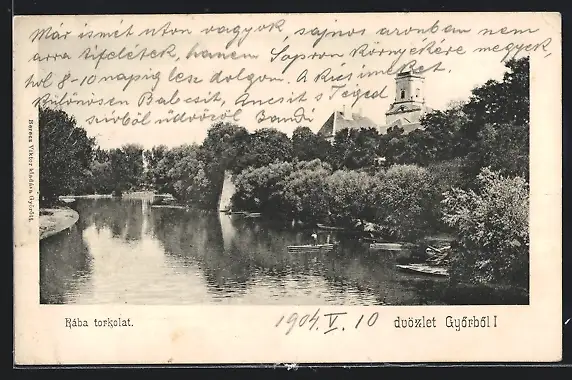 Már ismét uton vagyok, sajnos azonban nem
arra tifelétek, hanem Sopron környékére megyek,
hol 8-10 napig lesz dolgom. A kicsinyeket,
különösen Babcsit, Ancsit s Téged
szivből üdvözöl Bandi
Berecz Viktor kiadása Győrött.
Rába torkolat.
1904. V. 10
dvözlet Győrből!